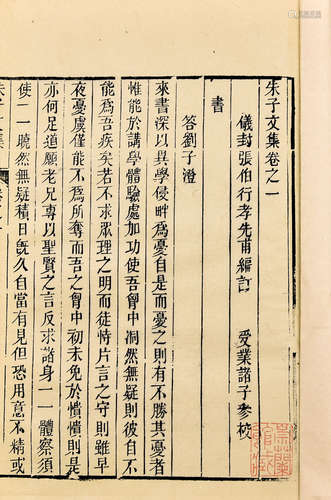 朱子文集卷之一
儀封張伯行孝先甫編訂　受業諸子參校
書
答劉子澄
來書深以異學侵畔為憂自是而憂之則有不勝其憂者
惟能於講學體驗處加功使吾胷中洞然無疑則彼自不
能為吾疾矣若不求衆理之明而徒恃片言之守則雖早
夜憂虞僅能不為所奪而吾之胷中初未免於憒憒則是
亦何足道願老兄專以聖賢之言反求諸身一一體察須
使一一曉然無疑積日既久自當有見但恐用意不精或